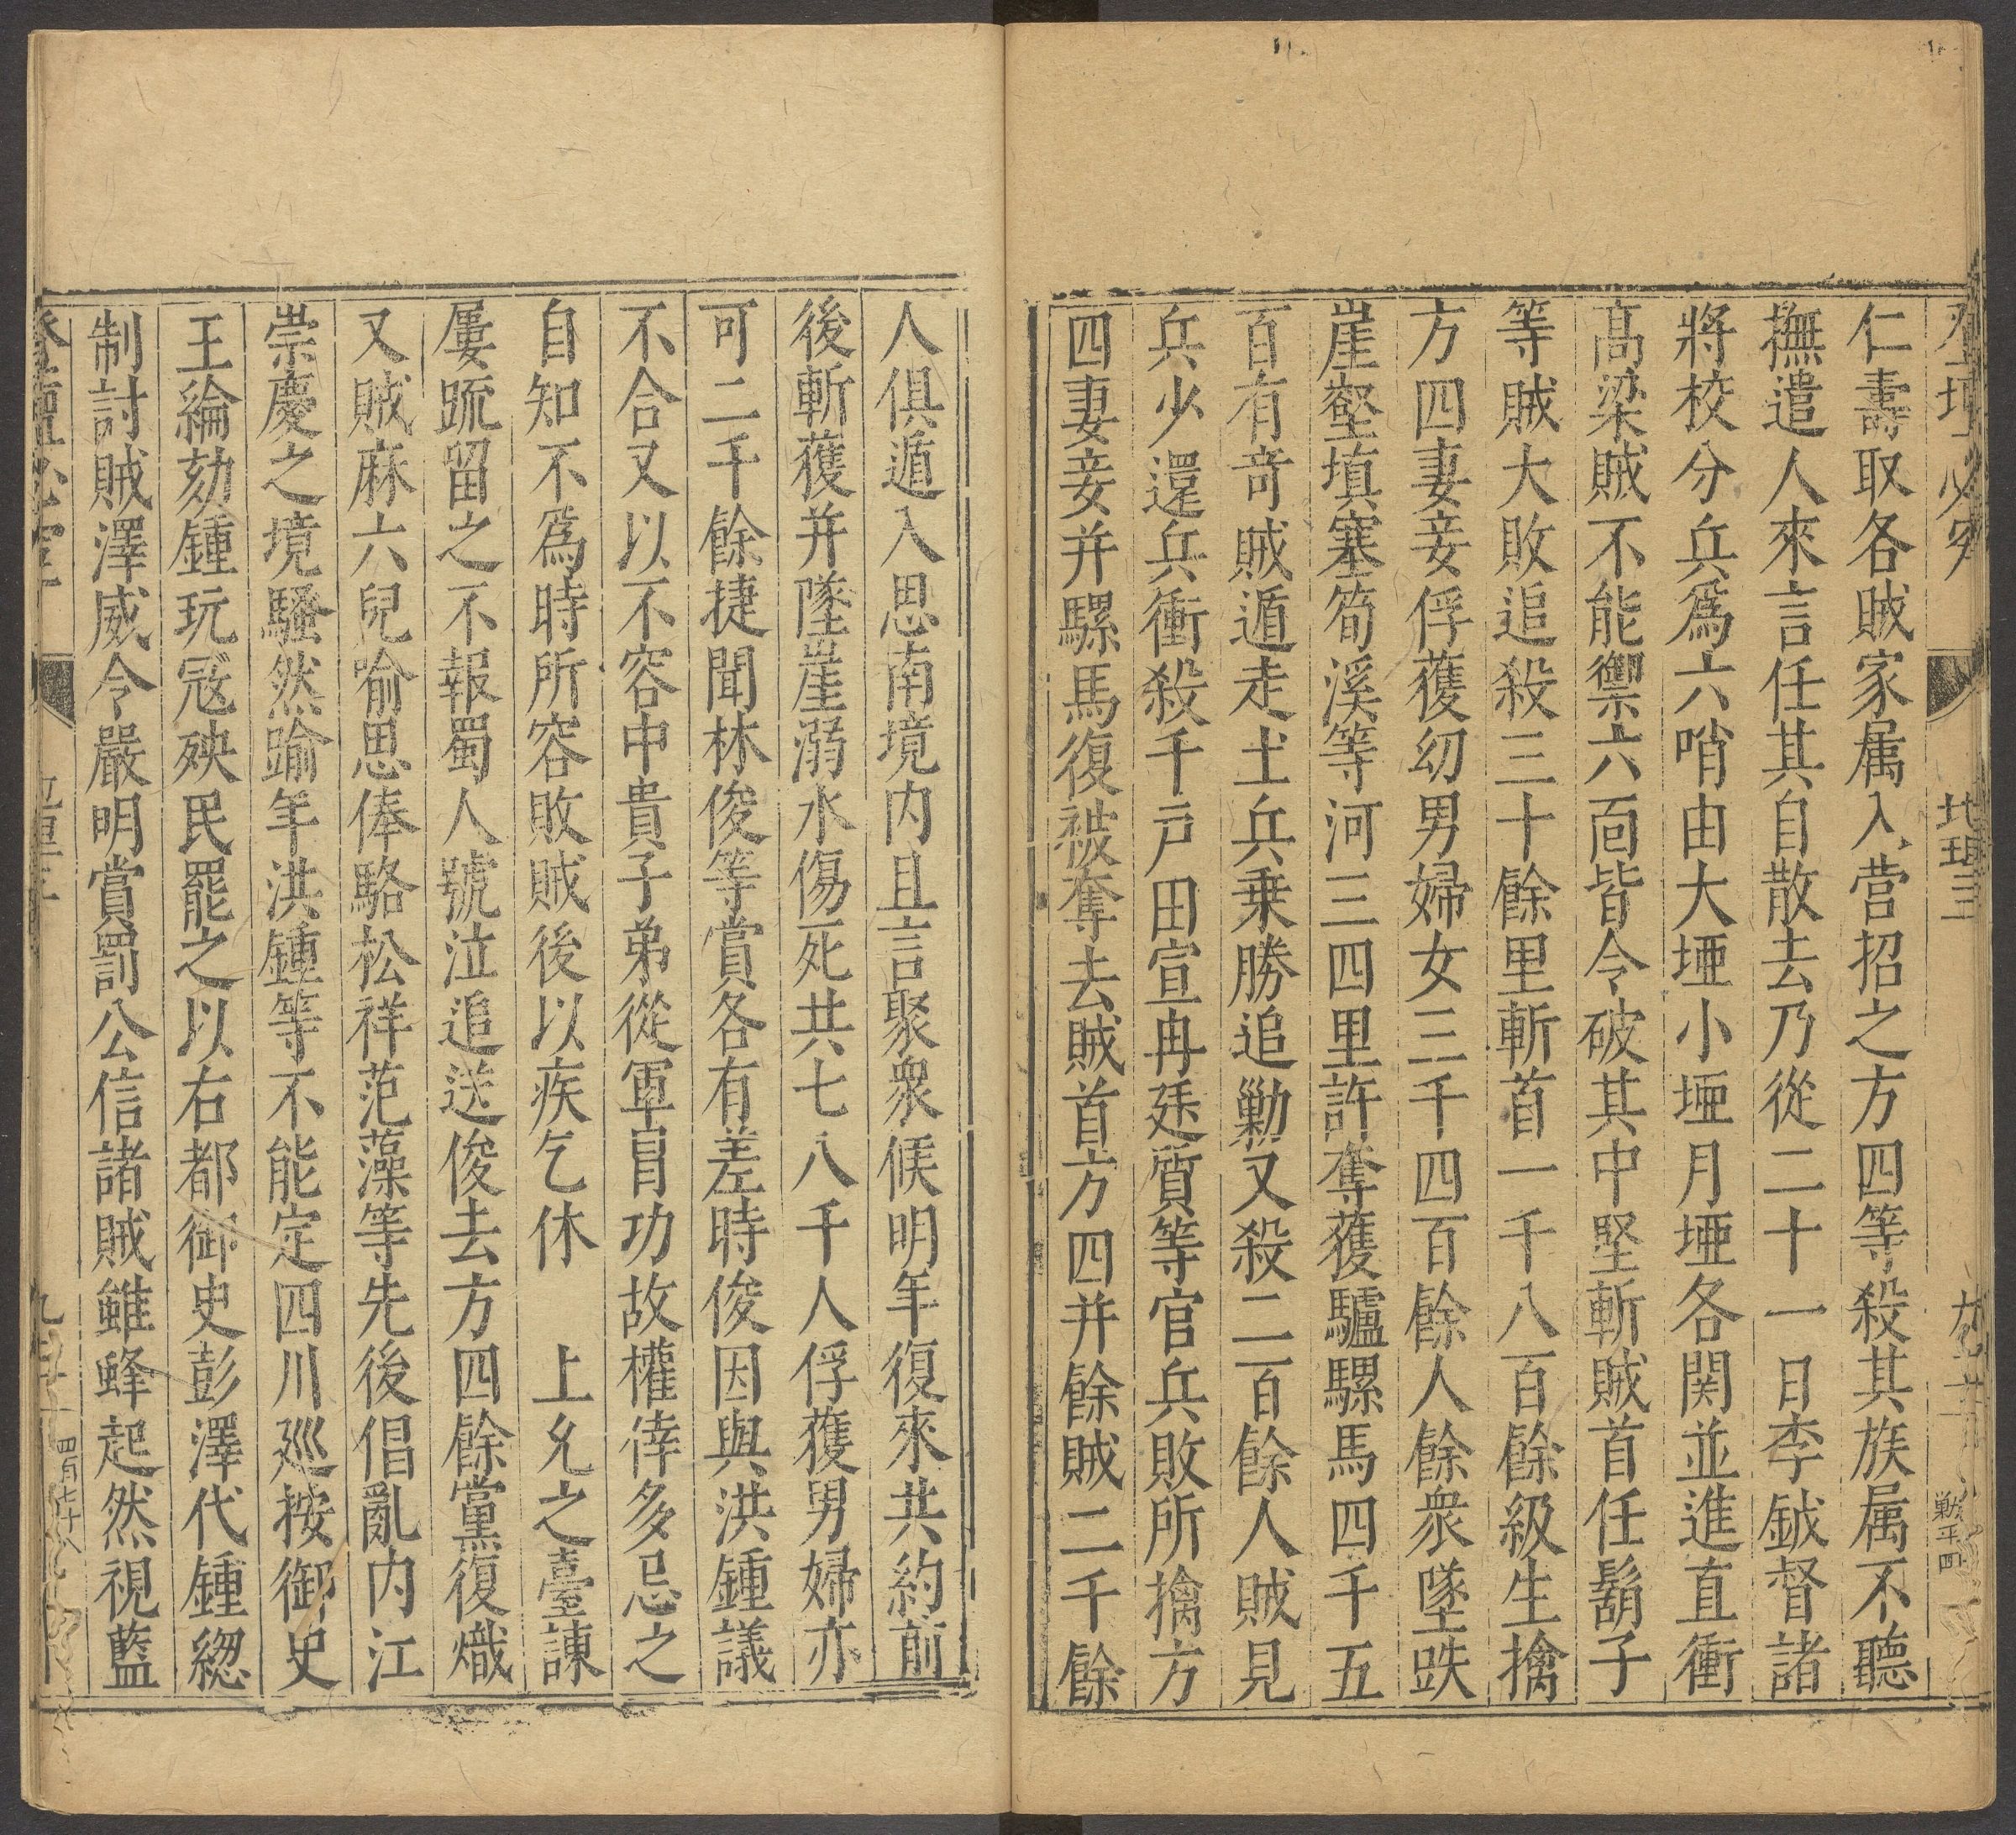 仁壽取各賊家属入营招之方四等殺其族属不聽
撫遣人來言任其自散去乃從二十一日李鉞督諸
將校分兵爲六哨由大埡小埡月埡各関並進直衝
髙梁賊不能禦六靣皆令破其中堅斬賊首任鬍子
等賊大敗追殺三十餘里斬首一千八百餘級生擒
方四妻妾俘獲㓜男婦女三千四百餘人餘衆墜跌
崖壑填塞筍溪等河三四里許奪獲驢騾馬四千五
百有奇賊遁走土兵乗勝追勦又殺二百餘人賊見
兵少還兵衝殺千户田宣冉廷質等官兵敗所擒方
四妻妾并騾馬復被奪去賊首方四并餘賊二千餘
人俱遁入思南境内且言聚衆候明年復來共約前
後斬獲并墜崖溺水傷死共七八千人俘獲男婦亦
可二千餘捷聞林俊等賞各有差時俊因與洪鍾議
不合又以不容中貴子弟從軍冐功故權倖多忌之
自知不爲時所容敗賊後以疾乞休　上允之臺諫
屢䟽留之不報蜀人號泣追送俊去方四餘黨復熾
又賊麻六兒喻思俸駱松祥范藻等先後倡亂内江
崇慶之境騷然踰年洪鍾等不能定四川廵按御史
王綸劾鍾玩冦殃民罷之以右都御史彭澤代鍾緫
制討賊澤威令嚴明賞罰公信諸賊雖蜂起然視藍
地理三
四百七十八